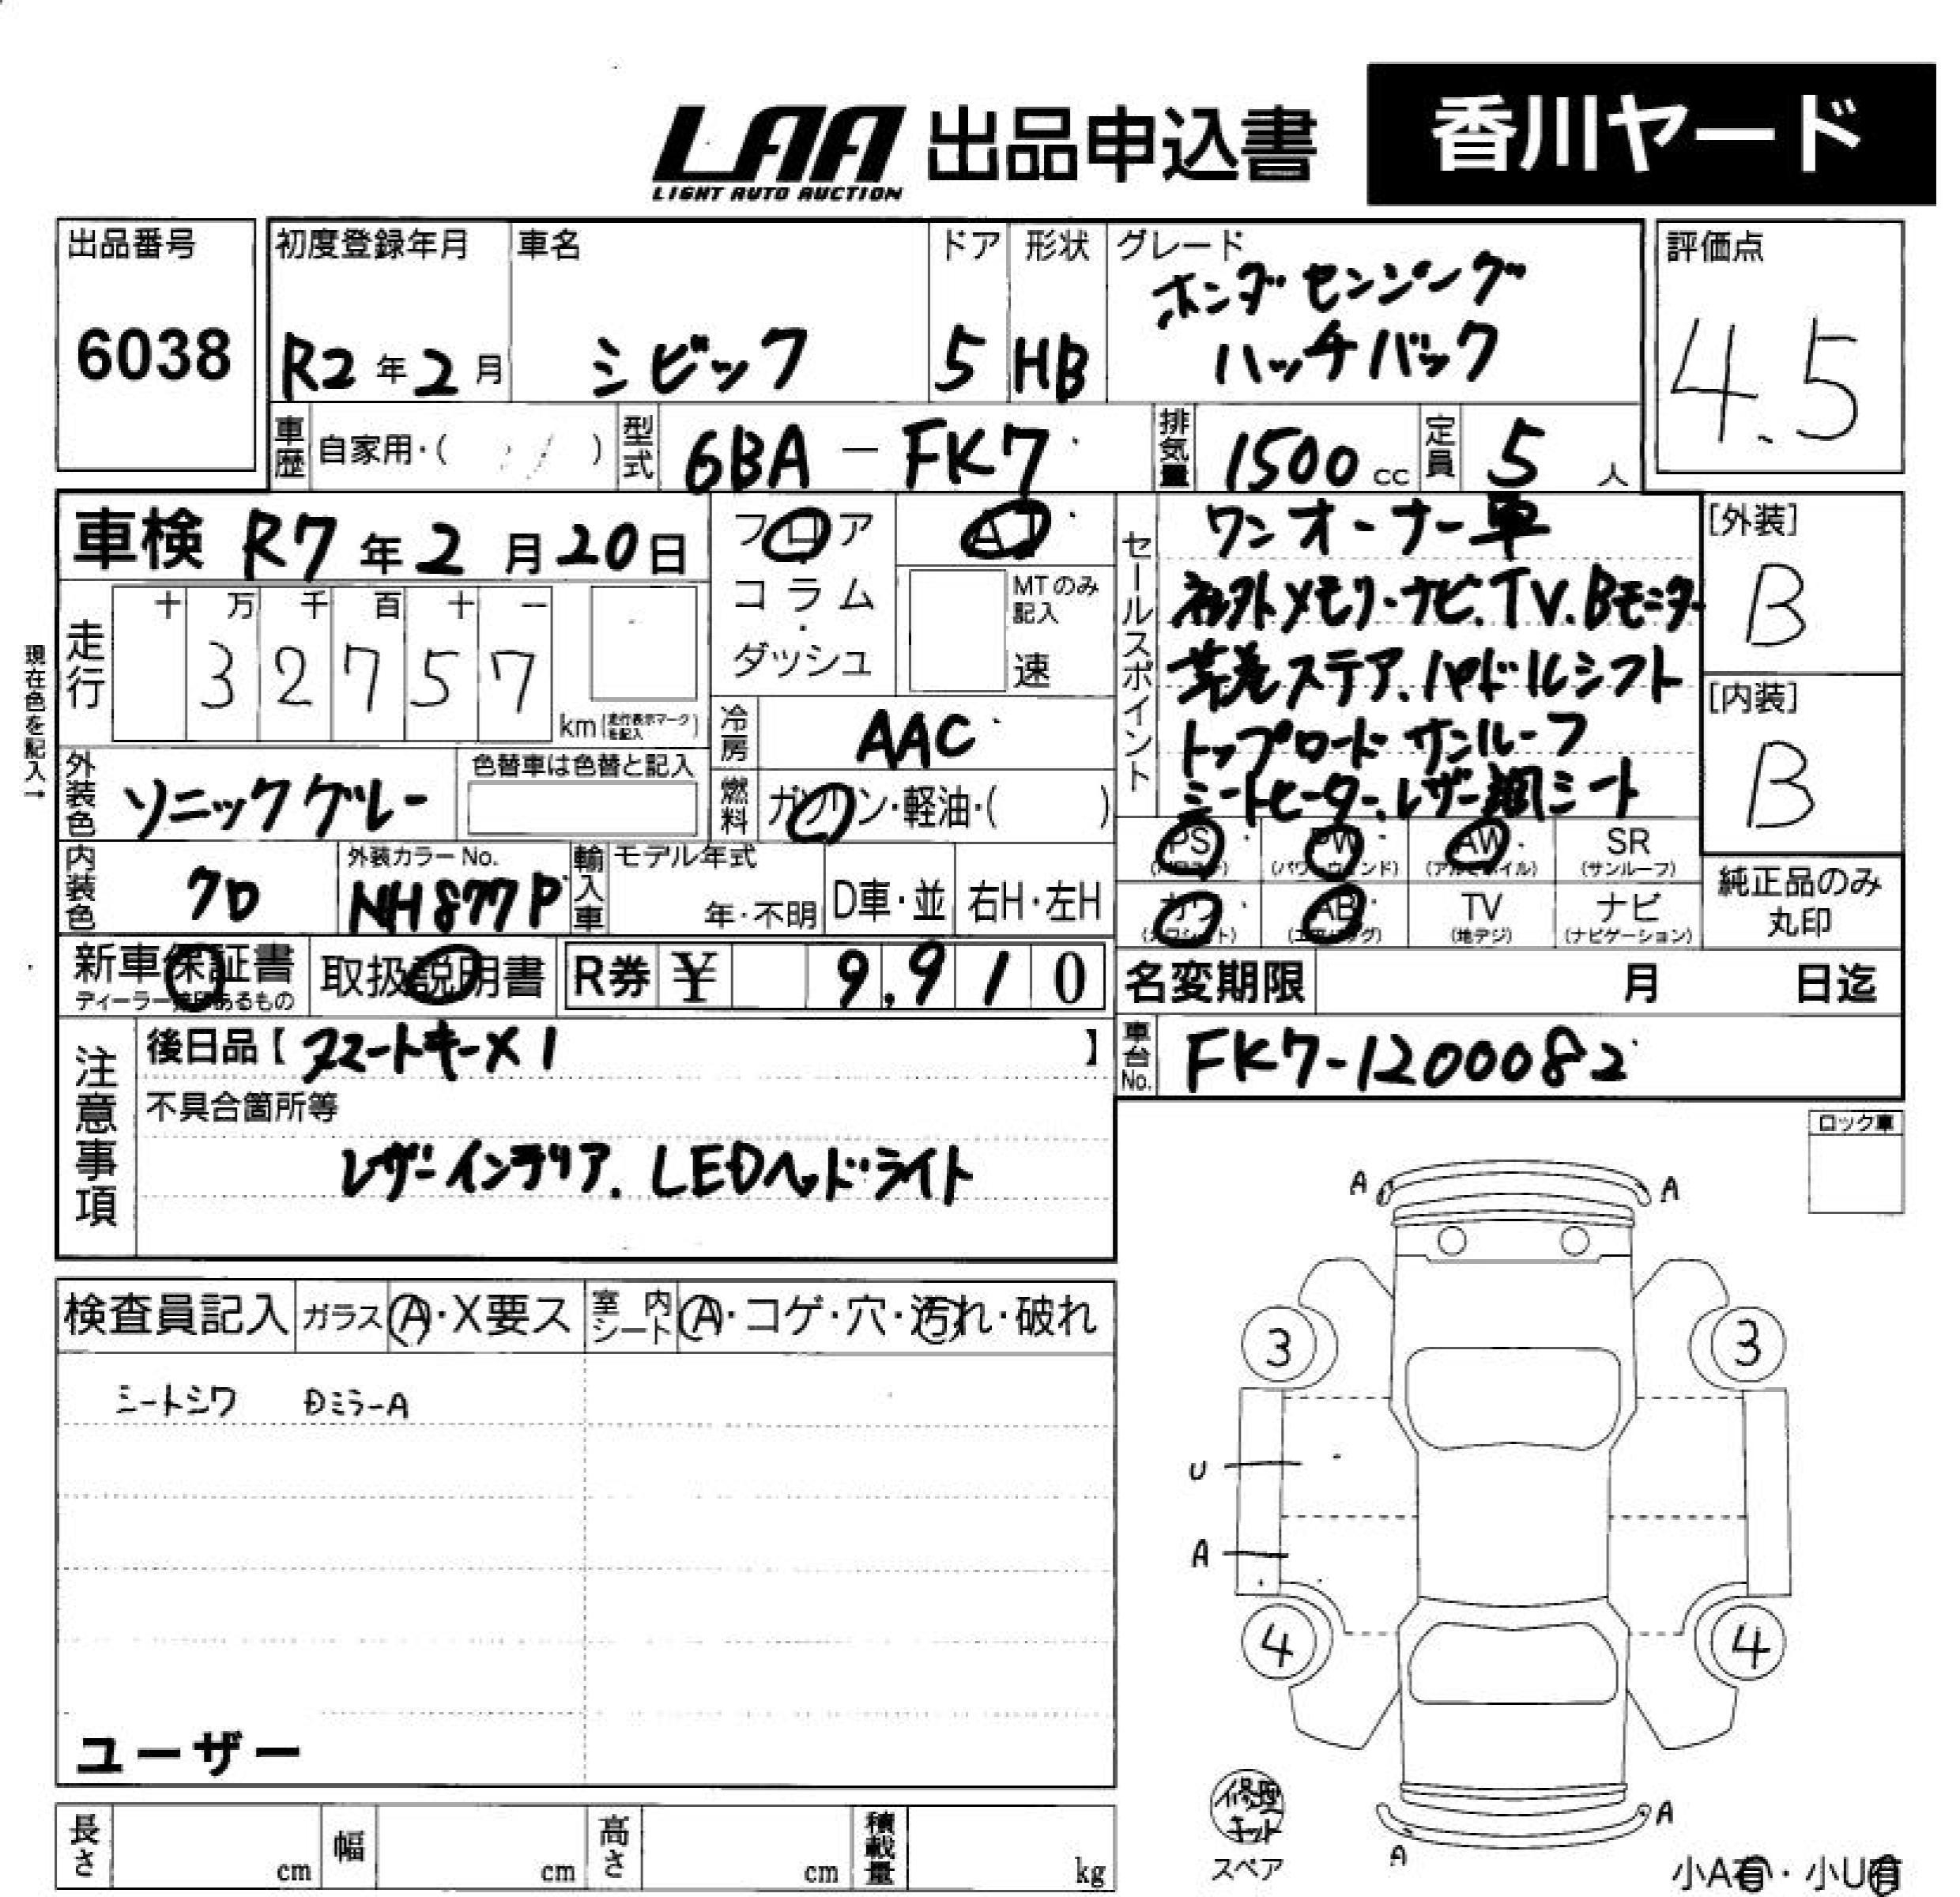 LAA 出品申込書 香川ヤード
LIGHT AUTO AUCTION
出品番号 初度登録年月 車名 ドア 形状 グレード 評価点
ホンダセンシング
6038 R2年2月 シビック 5 HB ハッチバック 4.5
車歴 自家用・( ) 型式 6BA－FK7 排気量 1500cc 定員 5人
車検 R7年2月20日 フロア AT セールスポイント ワンオーナー車 [外装]
社外メモリーナビ.TV.Bモニター B
コラム MTのみ記入
・
ダッシュ 速
現在色を記入→
走行 十 万 千 百 十 一
3 2 7 5 7 km(走行表示マークを記入)
革巻ステア.パドルシフト [内装]
冷房 AAC トップロードサンルーフ B
外装色 ソニックグレー 色替車は色替と記入 燃料 ガソリン・軽油・( ) シートヒーター.レザー調シート
PS PW AW SR
(パワステ) (パワーウィンド) (アルミホイル) (サンルーフ)
内装色 クロ 外装カラーNo. NH877P 輸入車 モデル年式 年・不明 D車・並 右H・左H 純正品のみ
丸印
カワ AB TV ナビ
(カワシート) (エアバッグ) (地デジ) (ナビゲーション)
新車保証書 取扱説明書 R券 ¥ 9,910 名変期限 月 日迄
ディーラー捺印あるもの
注意事項 後日品【スマートキー×1 】 車台No. FK7-1200082
不具合箇所等
レザーインテリア. LEDヘッドライト
ロック車
検査員記入 ガラス A・X要ス 室内シート A・コゲ・穴・汚れ・破れ
シートシワ DミラーA
A A
3 3
U
A
4 4
ユーザー
修理キット
スペア
A
A
長さ cm 幅 cm 高さ cm 積載量 kg
小A有・小U有